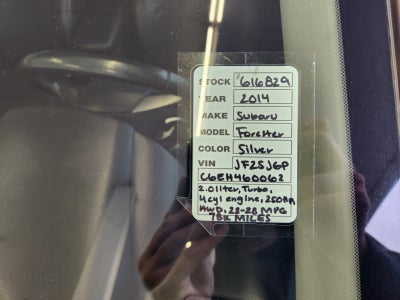 STOCK #616829
YEAR 2014
MAKE Subaru
MODEL Forester
COLOR Silver
VIN JF2SJGP
C6EH460062
2.0liter, Turbo,
4cyl engine, 250HP,
AWD, 23-28 MPG
79K MILES